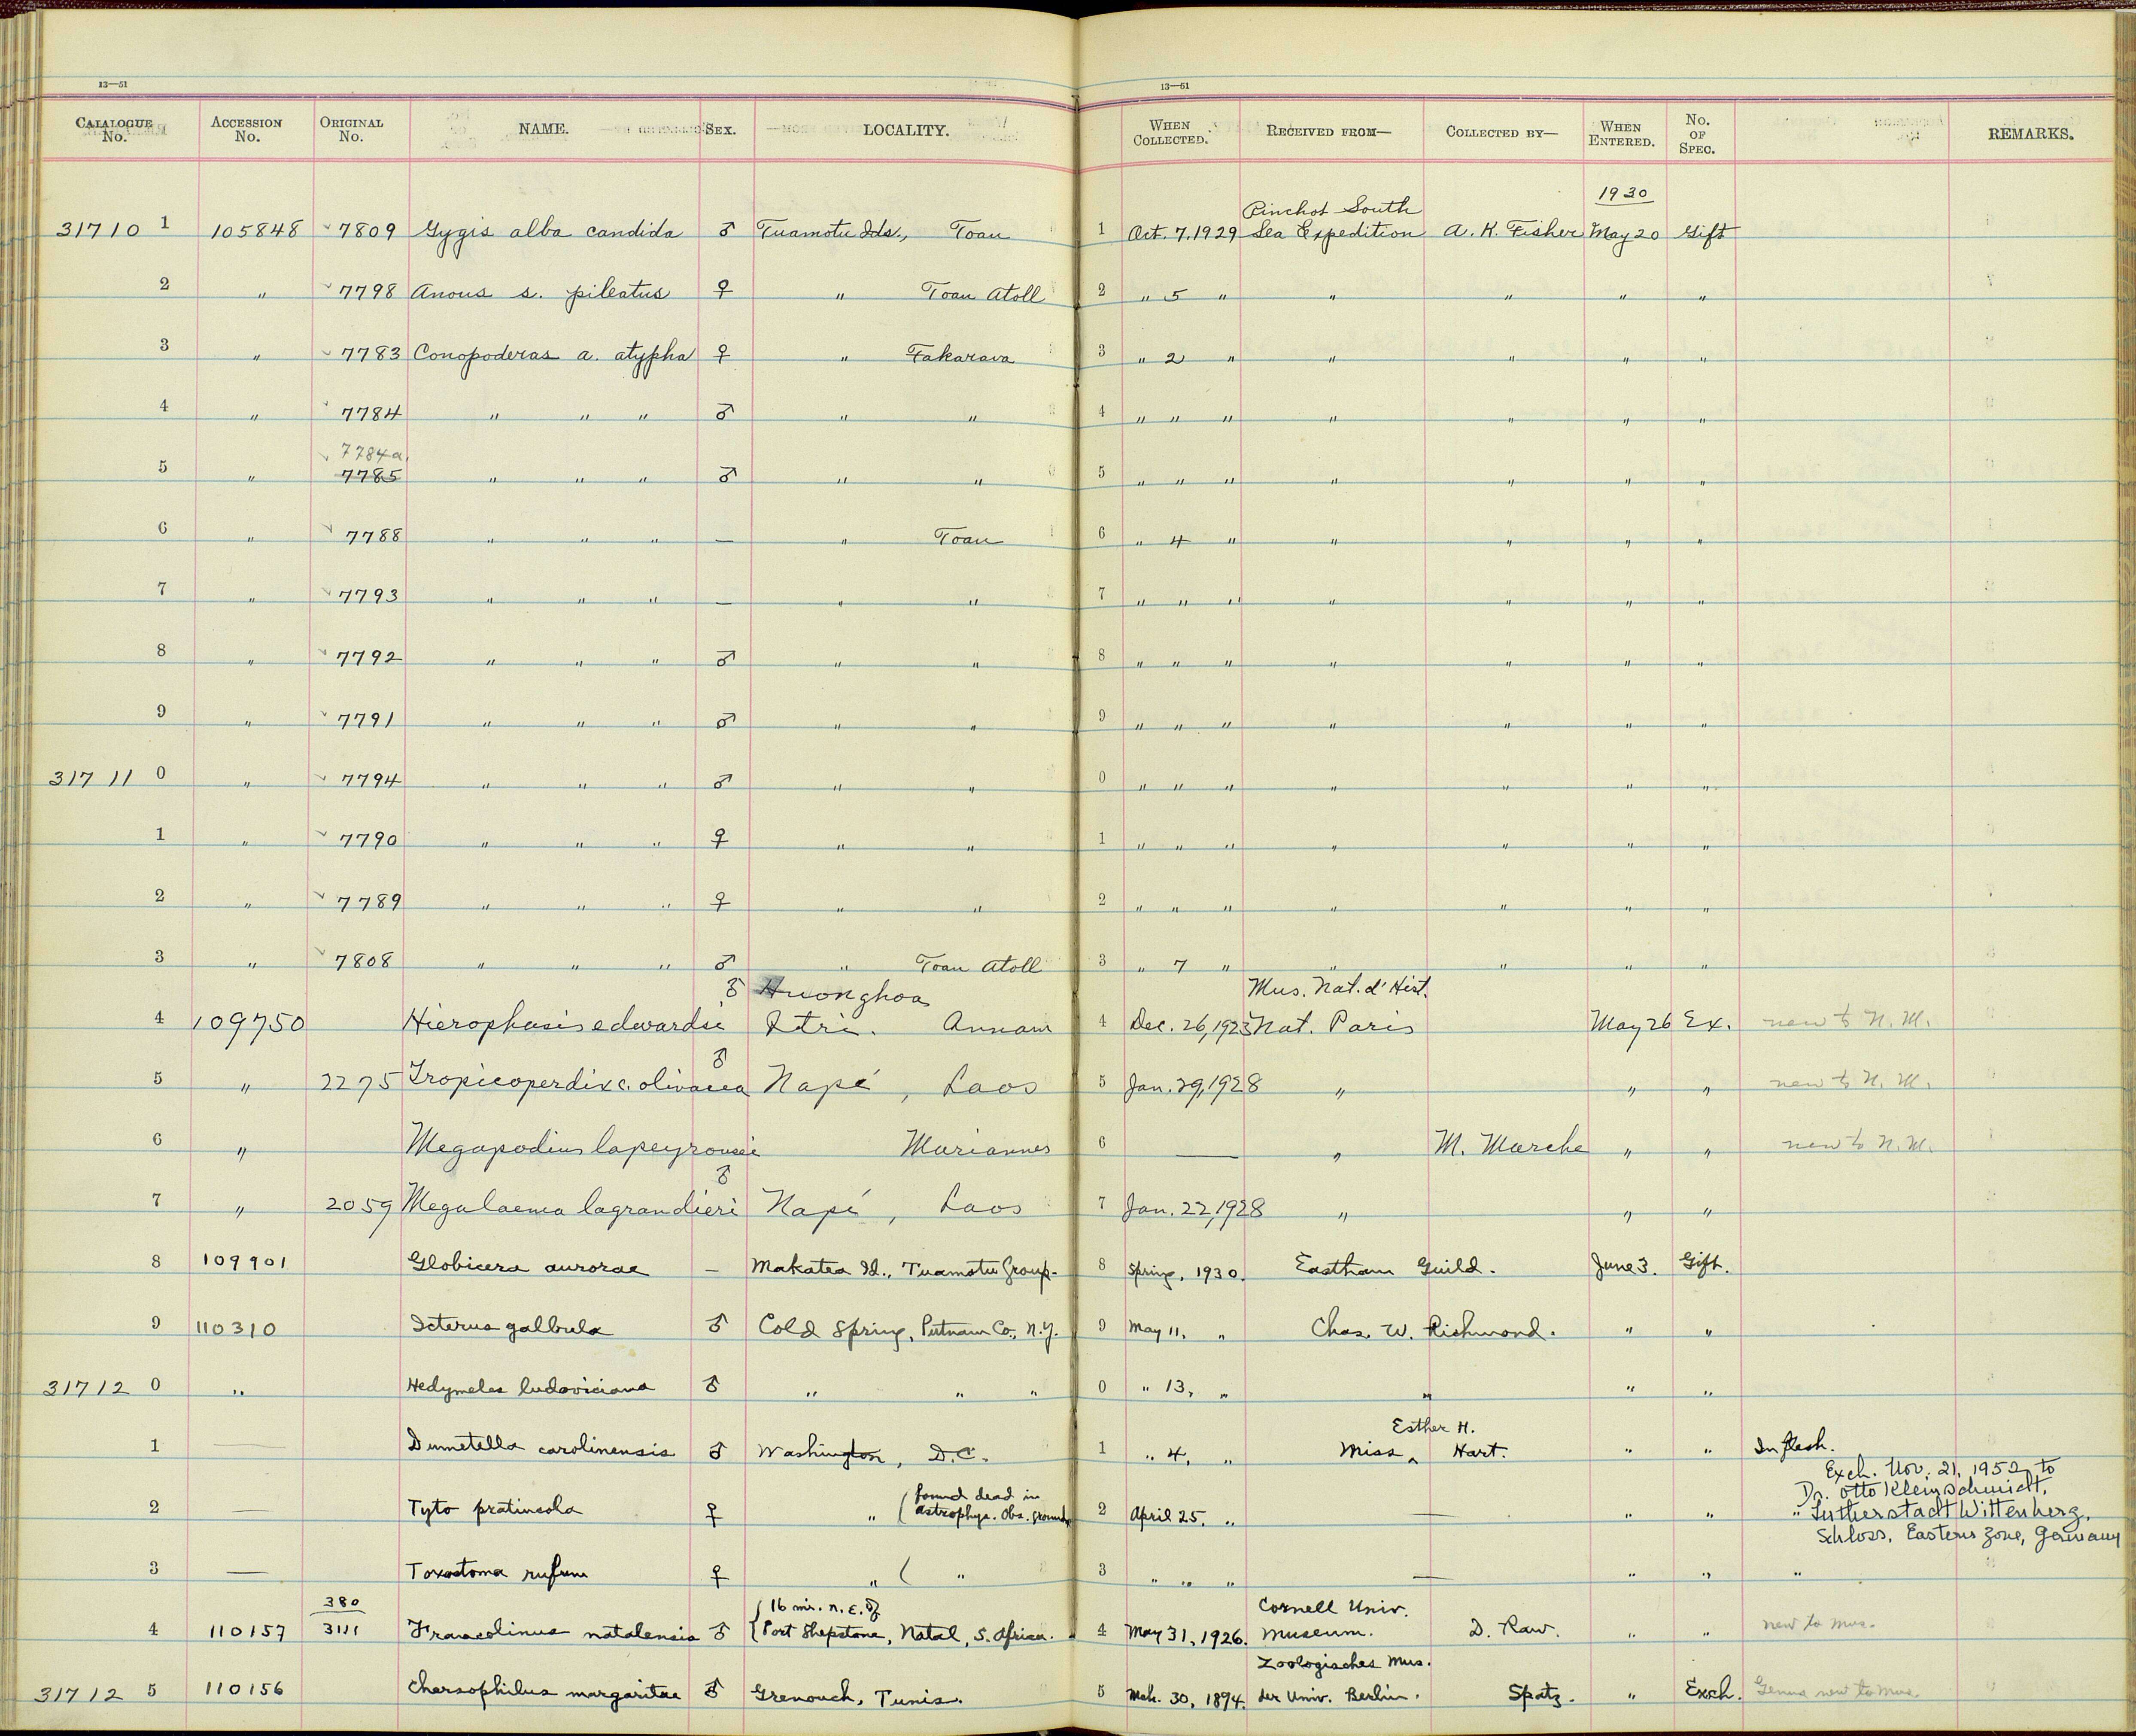 13—51 13—61
CATALOGUE No. ACCESSION No. ORIGINAL No. NAME. SEX. LOCALITY. WHEN COLLECTED. RECEIVED FROM— COLLECTED BY— WHEN ENTERED. No. OF SPEC. REMARKS.
1930
Pinchot South
31710 1 105848 7809 Gygis alba candida ♂ Tuamotu Ids., Toau 1 Oct. 7, 1929 Sea Expedition A. K. Fisher May 20 Gift
2 " 7798 Anous s. pileatus ♀ " Toau Atoll 2 " 5 " " " " "
3 " 7783 Conopoderas a. atypha ♀ " Fakarava 3 " 2 " " " " "
4 " 7784 " " " ♂ " " 4 " " " " " " "
7784a
5 " 7785 " " " ♂ " " 5 " " " " " " "
6 " 7788 " " " — " Toau 6 " 4 " " " " "
7 " 7793 " " " — " " 7 " " " " " " "
8 " 7792 " " " ♂ " " 8 " " " " " " "
9 " 7791 " " " ♂ " " 9 " " " " " " "
31711 0 " 7794 " " " ♂ " " 0 " " " " " " "
1 " 7790 " " " ♀ " " 1 " " " " " " "
2 " 7789 " " " ♀ " " 2 " " " " " " "
3 " 7808 " " " ♂ " Toau Atoll 3 " 7 " " " " "
♂ Huonghoa Mus. Nat. d' Hist.
4 109750 Hierophasis edwardsi Qtri. Annam 4 Dec. 26, 1923 Nat. Paris May 26 Ex. new to N. M.
♂
5 " 2275 Tropicoperdix c. olivacea Napé, Laos 5 Jan. 29, 1928 " " " new to N. M.
6 " Megapodius lapeyrousei Mariannes 6 — " M. Marche " " new to N. M.
♂
7 " 2059 Megalaema lagrandieri Napé, Laos 7 Jan. 22, 1928 " " "
8 109901 Globicera aurorae — Makatea Id., Tuamotu Group. 8 Spring, 1930. Eastham Guild. June 3. Gift.
9 110310 Icterus galbula ♂ Cold Spring, Putnam Co., N.Y. 9 May 11, " Chas. W. Richmond. " "
31712 0 " Hedymeles ludoviciana ♂ " " " 0 " 13, " " " "
Esther H.
1 — Dumetella carolinensis ♂ Washington, D.C. 1 " 4, " Miss ‸ Hart. " " In flesh.
Exch. Nov. 21, 1952 to
found dead in Dr. Otto Kleinschmidt,
2 — Tyto pratincola ♀ " (Astrophys. Obs. grounds 2 April 25, " — " " " Lutherstadt Wittenberg,
Schloss, Eastern Zone, Germany
3 — Toxostoma rufum ♀ " ( " 3 " " " — " " "
380 16 mi. n. e. of Cornell Univ.
4 110157 3111 Francolinus natalensis ♂ {Port Shepstone, Natal, S. Africa. 4 May 31, 1926. Museum. D. Raw. " " new to mus.
Zoologisches Mus.
31712 5 110156 Chersophilus margaritae ♂ Grenouch, Tunis. 5 Mch. 30, 1894. der Univ. Berlin. Spatz. " Exch. Genus new to Mus.